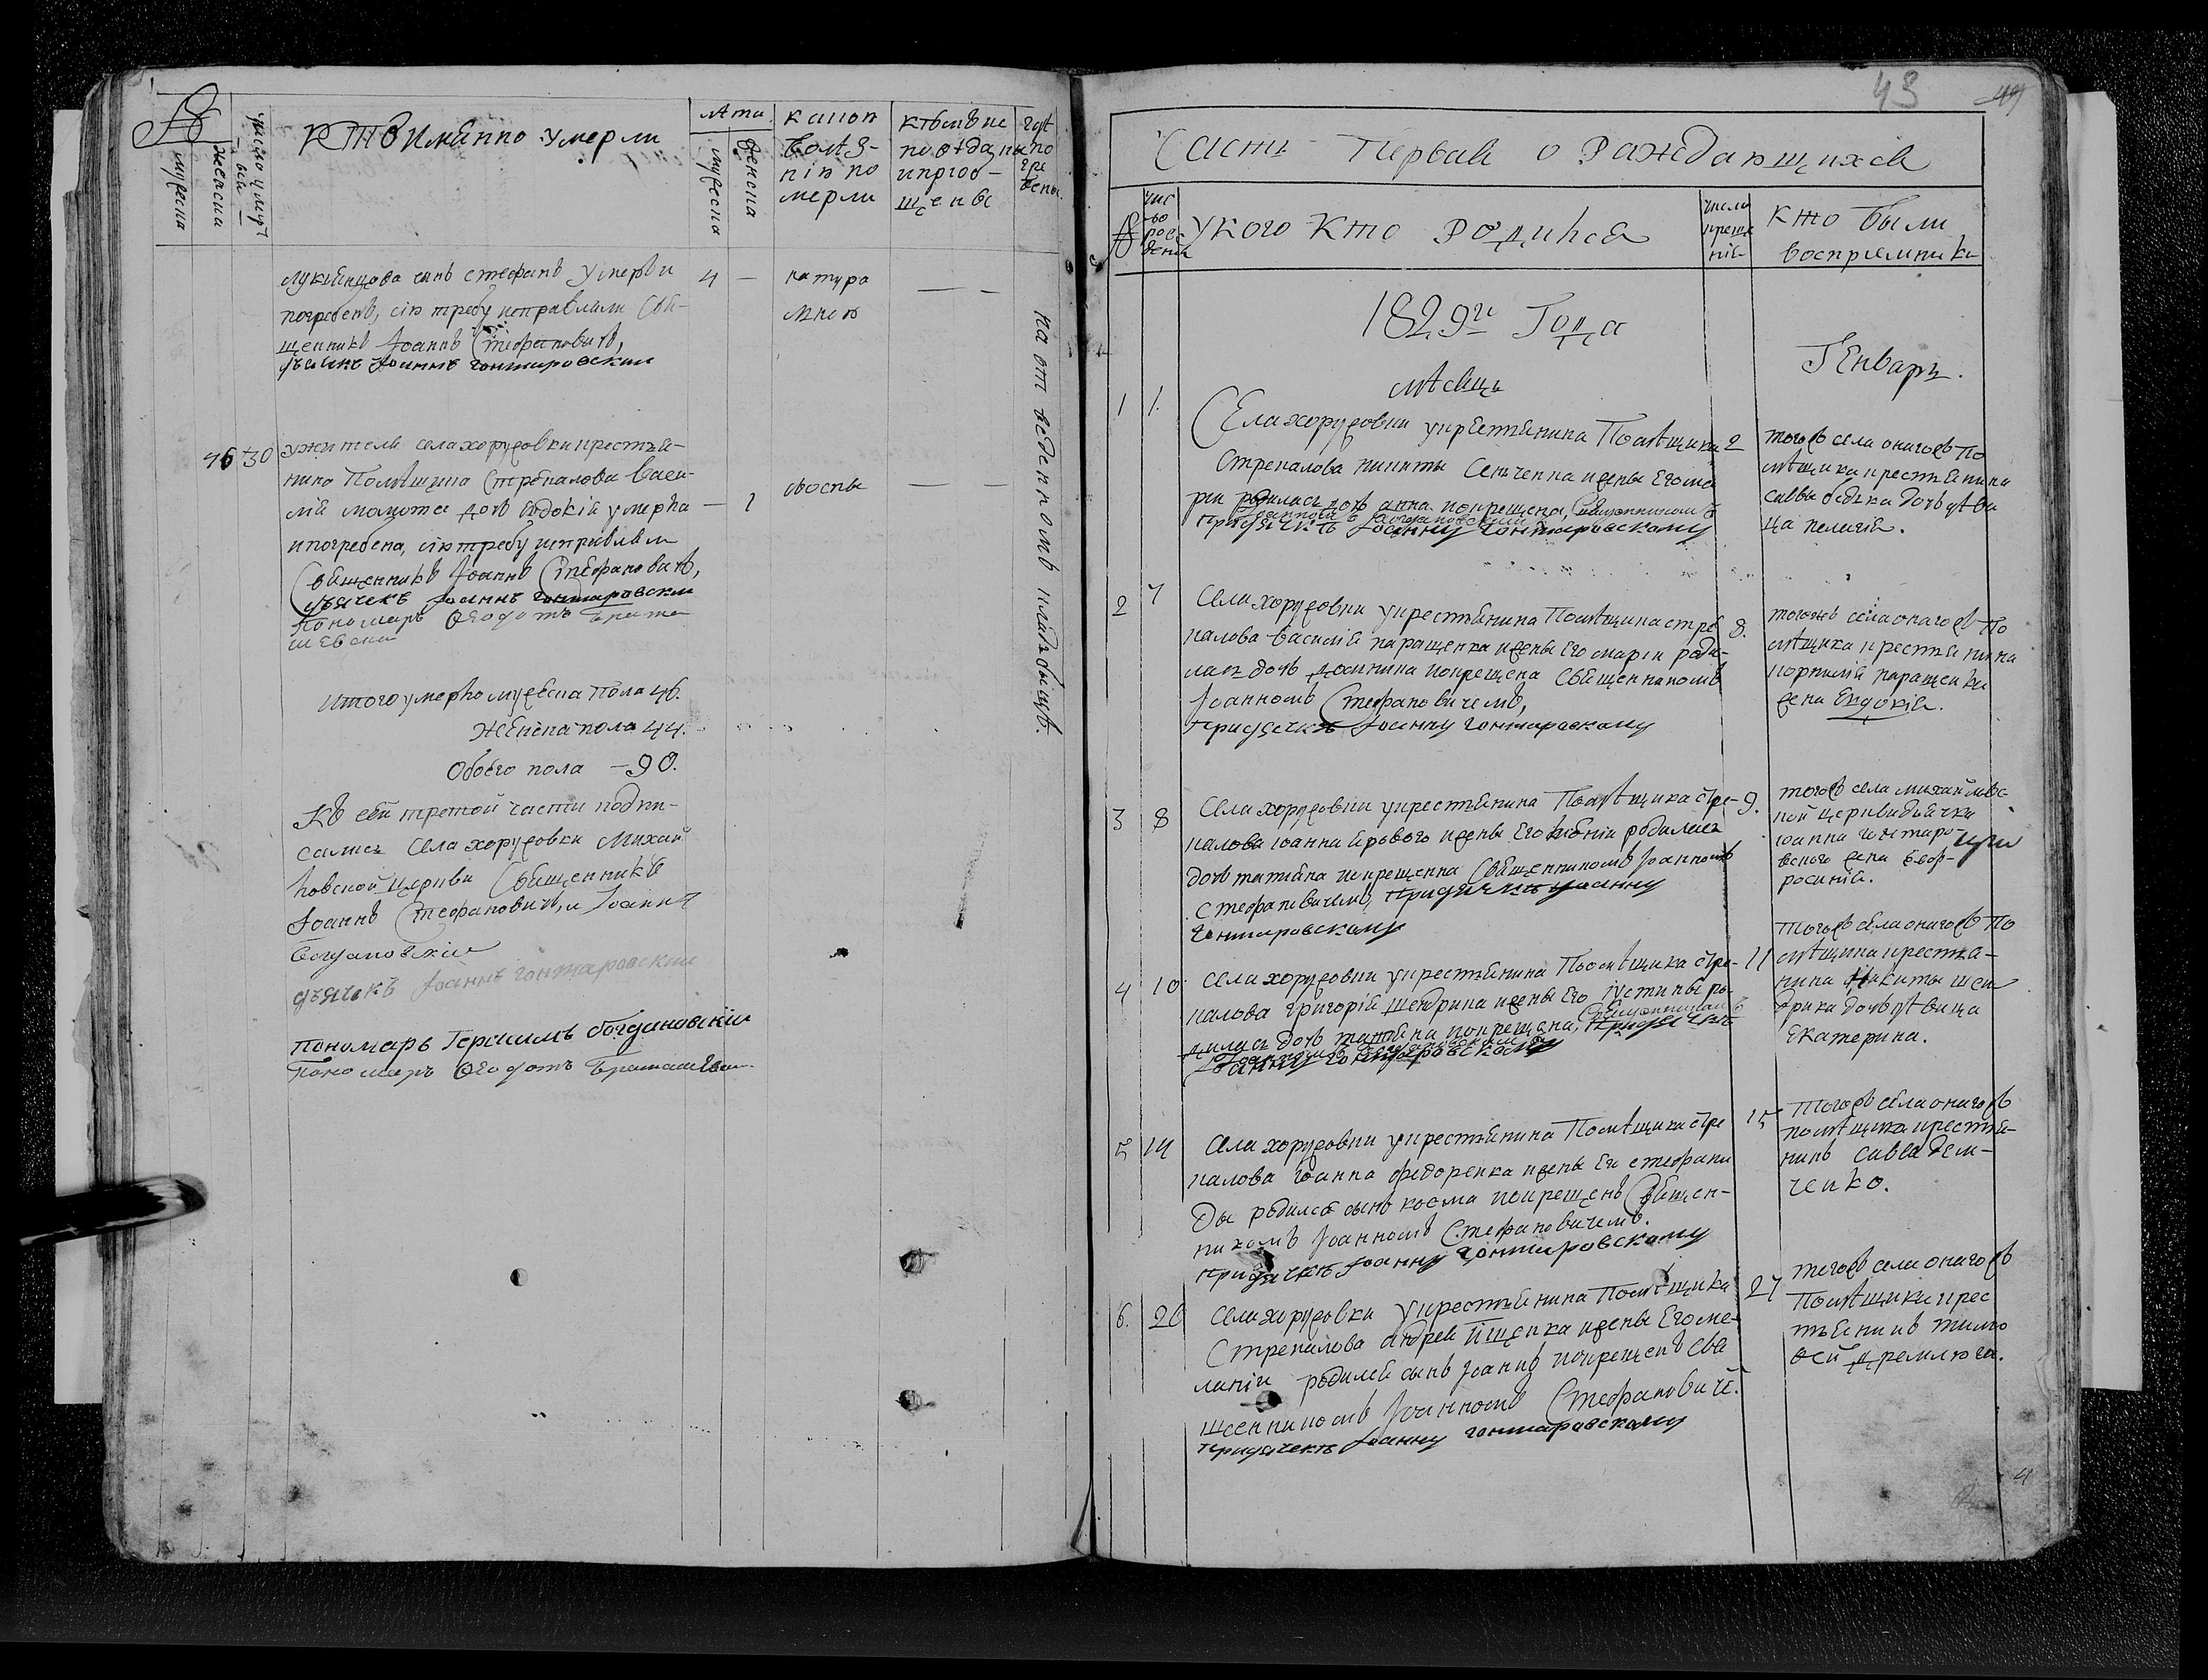 №
мужеска
женска
число умерших
Кто Имянно умерли
лѣта
мужеска
женска
какою
болѣз-
нію по
мерли
кѣмъ
исповѣданы
и приоб-
щены
гдѣ
по
гре
бены
сынъ Стефанъ умерлъ и
4 —
натура
лною
— —
погребенъ, сію требу исправляли Свя-
щенникъ Іоаннъ Стефановичъ,
дьячекъ Іоаннъ Гонтаровский
на отведенномъ кладбыщѣ.
46 30
у жителя села Хоружовки крестья-
нина Помѣщика Стрепалова Васи-
лія дочь Евдокія умерла
— 1
воспы
— —
и погребена, сію требу исправляли
Священникъ Іоаннъ Стефановичъ,
дьячекъ Іоаннъ Гонтаровский
Пономарь Ѳеодотъ Браташ
шевский
Итого умерло мужеска пола 46.
Женска пола 44.
Обоего пола — 90.
Къ сей третой части подпи-
сались Села Хоружовки Михай
ловской церкви Священники
Іоаннъ Стефановичъ, и Іоаннъ
Богдановскій
дьячекъ Іоаннъ Гонтаровский
пономарь Герасимъ Богдановскій
Пономарь Ѳеодотъ Браташевски
43
49
Часть Первая о Раждающихся
№
чис
ло
рож
дения
У кого Кто Родился
числа
креще
нія
Кто были
восприемники
1829го Года
Мѣсяць
Генварь.
1 1.
Села Хоружовки у крестьянина Помѣщика
2
Стрепалова Никиты Сенченка и жены Его Ма
рии родилась дочь Анна и окрещена, Священникомъ
Іоанномъ Богдановскимъ
при дьячкѣ Іоанну Гонтаровскому
тогожъ села оногожъ По
мѣщика крестьянина
Саввы дочь дѣви
ца Пелагія.
2 7
Села Хоружовки у крестьянина Помѣщика Стре
8.
палова Василія Паращенка и жены Его Марии роди-
лась дочь Домникиа и окрещена Священникомъ
Іоанномъ Стефановичемъ,
при дьячкѣ Іоанну Гонтаровскому
тогожъ села оногожъ По
мѣщика крестьянина
Корнилія Паращенка
жена Евдокія.
3 8
Села Хоружовки у крестьянина Помѣщика Стре-
9.
палова Іоанна Ярового и жены Его родилась
дочь Татіяна и окрещенна Священникомъ Іоанномъ
Стефановичемъ, при дьячкѣ Іоанну
Гонтаровскому
тогожъ села Михайловс
кой церкви дьячка
Іоанна Гонтаро-
вского жена Евф-
росинія.
4 10
Села Хоружовки у крестьянина Помѣщика Стре-
11
палова Григорія Шендрика и жены Его Іустины ро-
дилась дочь Татіяна и окрещена, Священникомъ
Іоанномъ Богдановскимъ при дьячкѣ
Іоанну Гонтаровскому
тогожъ села оногожъ По
мѣщика крестья-
нина Никиты Шен
дрика дочь дѣвица
Екатерина.
5 14
Села Хоружовки у крестьянина Помѣщика Стре
15
палова Іоанна Федоренка и жены Его Стефани
ды родился сынъ Косма и окрещенъ Священ-
никомъ Іоанномъ Стефановичемъ.
при дьячкѣ Іоанну Гонтаровскому
тогожъ села оногожъ
помѣщика крестья-
нинъ Савва Дем-
ченко.
6. 26
Села Хоружовки у крестьянина Помѣщика
27
Стрепалова Андрея Ищенка и жены Его Ме-
ланіи родился сынъ Іоаннъ и окрещенъ Свя
щенникомъ Іоанномъ Стефановиче.
при дьячкѣ Іоанну Гонтаровскому
тогожъ села оногожъ
Помѣщика крес
тьянинъ Тимо
ѳей Дремлюга.